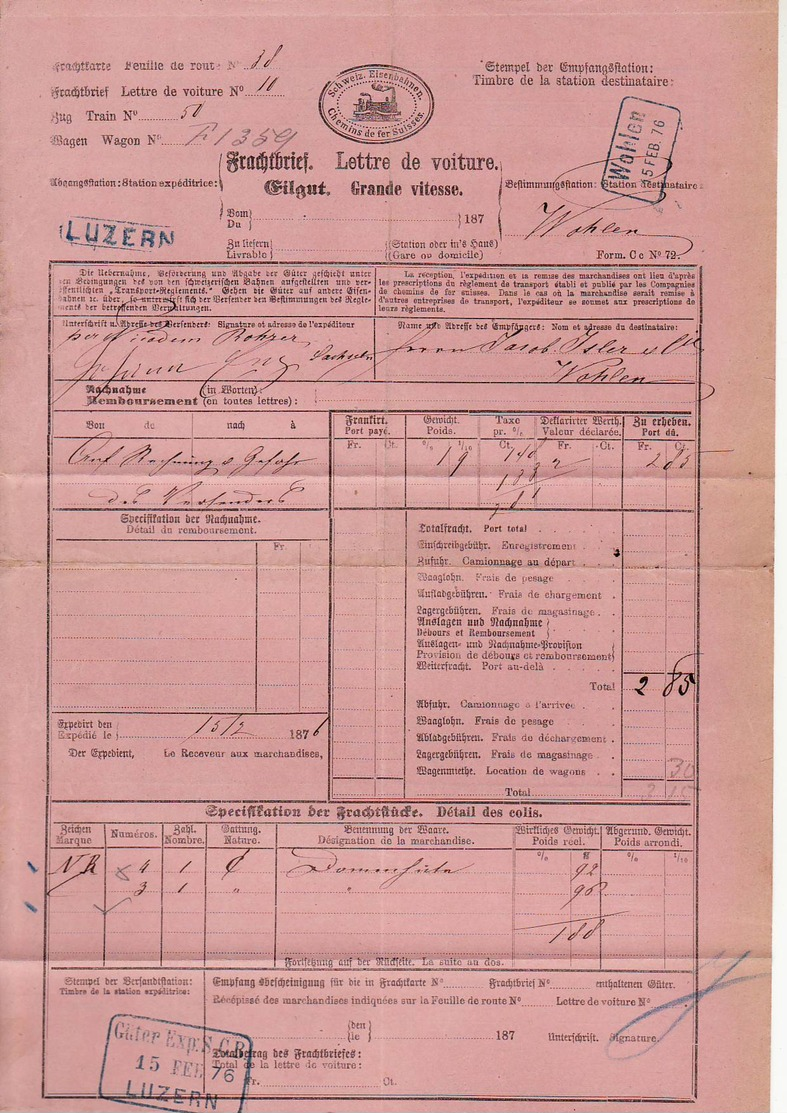 Frachtkarte Feuille de route No 38
Frachtbrief Lettre de voiture No 10
Zug Train No 50
Wagen Wagon No F 1359
Schweiz. Eisenbahnen.
Chemins de fer Suisses.
Stempel der Empfangsstation:
Timbre de la station destinataire:
Wohlen
15 FEB. 76
Frachtbrief. Lettre de voiture.
Eilgut. Grande vitesse.
Abgangsstation: Station expéditrice:
Bestimmungsstation: Station destinataire:
LUZERN
Vom
Du
187
Wohlen
Zu liefern (Station oder in's Haus)
Livrable (Gare ou domicile)
Form. C c No 72.
Die Uebernahme, Beförderung und Abgabe der Güter geschieht unter
den Bedingungen des von den schweizerischen Bahnen aufgestellten und ver-
öffentlichten „Transport-Reglements." Gehen die Güter auf andere Eisen-
bahnen ɾc. über, so unterwirft sich der Versender den Bestimmungen des Regle-
ments der betreffenden Verwaltungen.
La réception, l'expédition et la remise des marchandises ont lieu d'après
les prescriptions du règlement de transport établi et publié par les Compagnies
de chemins de fer suisses. Dans le cas où la marchandise serait remise à
d'autres entreprises de transport, l'expéditeur se soumet aux prescriptions de
leurs règlements.
Unterschrift u. Adresse des Versenders: Signature et adresse de l'expéditeur
Name und Adresse des Empfängers: Nom et adresse du destinataire:
per Nicodem Rohrer
Sachseln
Herrn Jacob Isler & Cie
Wohlen
Nachnahme (in Worten):
Remboursement (en toutes lettres): à
Von de nach à
Frankirt. Port payé.
Gewicht. Poids.
Taxe pr. %
Deklarirter Werth. Valeur déclarée.
Zu erheben. Port dû.
Fr. Ct. % 1/10 Ct. Fr. Ct. Fr. Ct.
Auf Rechnung & Gefahr
des Versenders
1 9
2 85
Spezifikation der Nachnahme.
Détail du remboursement.
Fr.
Totalfracht. Port total
Einschreibgebühr. Enregistrement
Zufuhr. Camionnage au départ
Waaglohn. Frais de pesage
Aufladgebühren. Frais de chargement
Lagergebühren. Frais de magasinage
Auslagen und Nachnahme
Débours et Remboursement
Auslagen- und Nachnahme-Provision
Provision de débours et remboursement
Weiterfracht. Port au-delà
Total 2 85
Abfuhr. Camionnage à l'arrivée
Waaglohn. Frais de pesage
Abladgebühren. Frais de déchargement
Lagergebühren. Frais de magasinage
Wagenmiethe. Location de wagons
30
Total 3 15
Expedirt den
Expédié le 15/2 1876
Der Expedient, Le Receveur aux marchandises,
Spezifikation der Frachtstücke. Détail des colis.
Zeichen Marque
Numéros.
Zahl. Nombre.
Gattung. Nature.
Benennung der Waare. Désignation de la marchandise.
Wirkliches Gewicht. Poids réel.
Abgerund. Gewicht. Poids arrondi.
% ℔ % 1/10
NR 4 1 92
3 1 " " 96
188
Fortsetzung auf der Rückseite. La suite au dos.
Stempel der Versandtstation:
Timbre de la station expéditrice:
Empfangsbescheinigung für die in Frachtkarte No Frachtbrief No enthaltenen Güter.
Récépissé des marchandises indiquées sur la Feuille de route No Lettre de voiture No
den
le 187 Unterschrift. Signature.
Totalbetrag des Frachtbriefes:
Total de la lettre de voiture:
Fr. Ct.
Güter Exp. S.C.B.
15 FEB 76
LUZERN